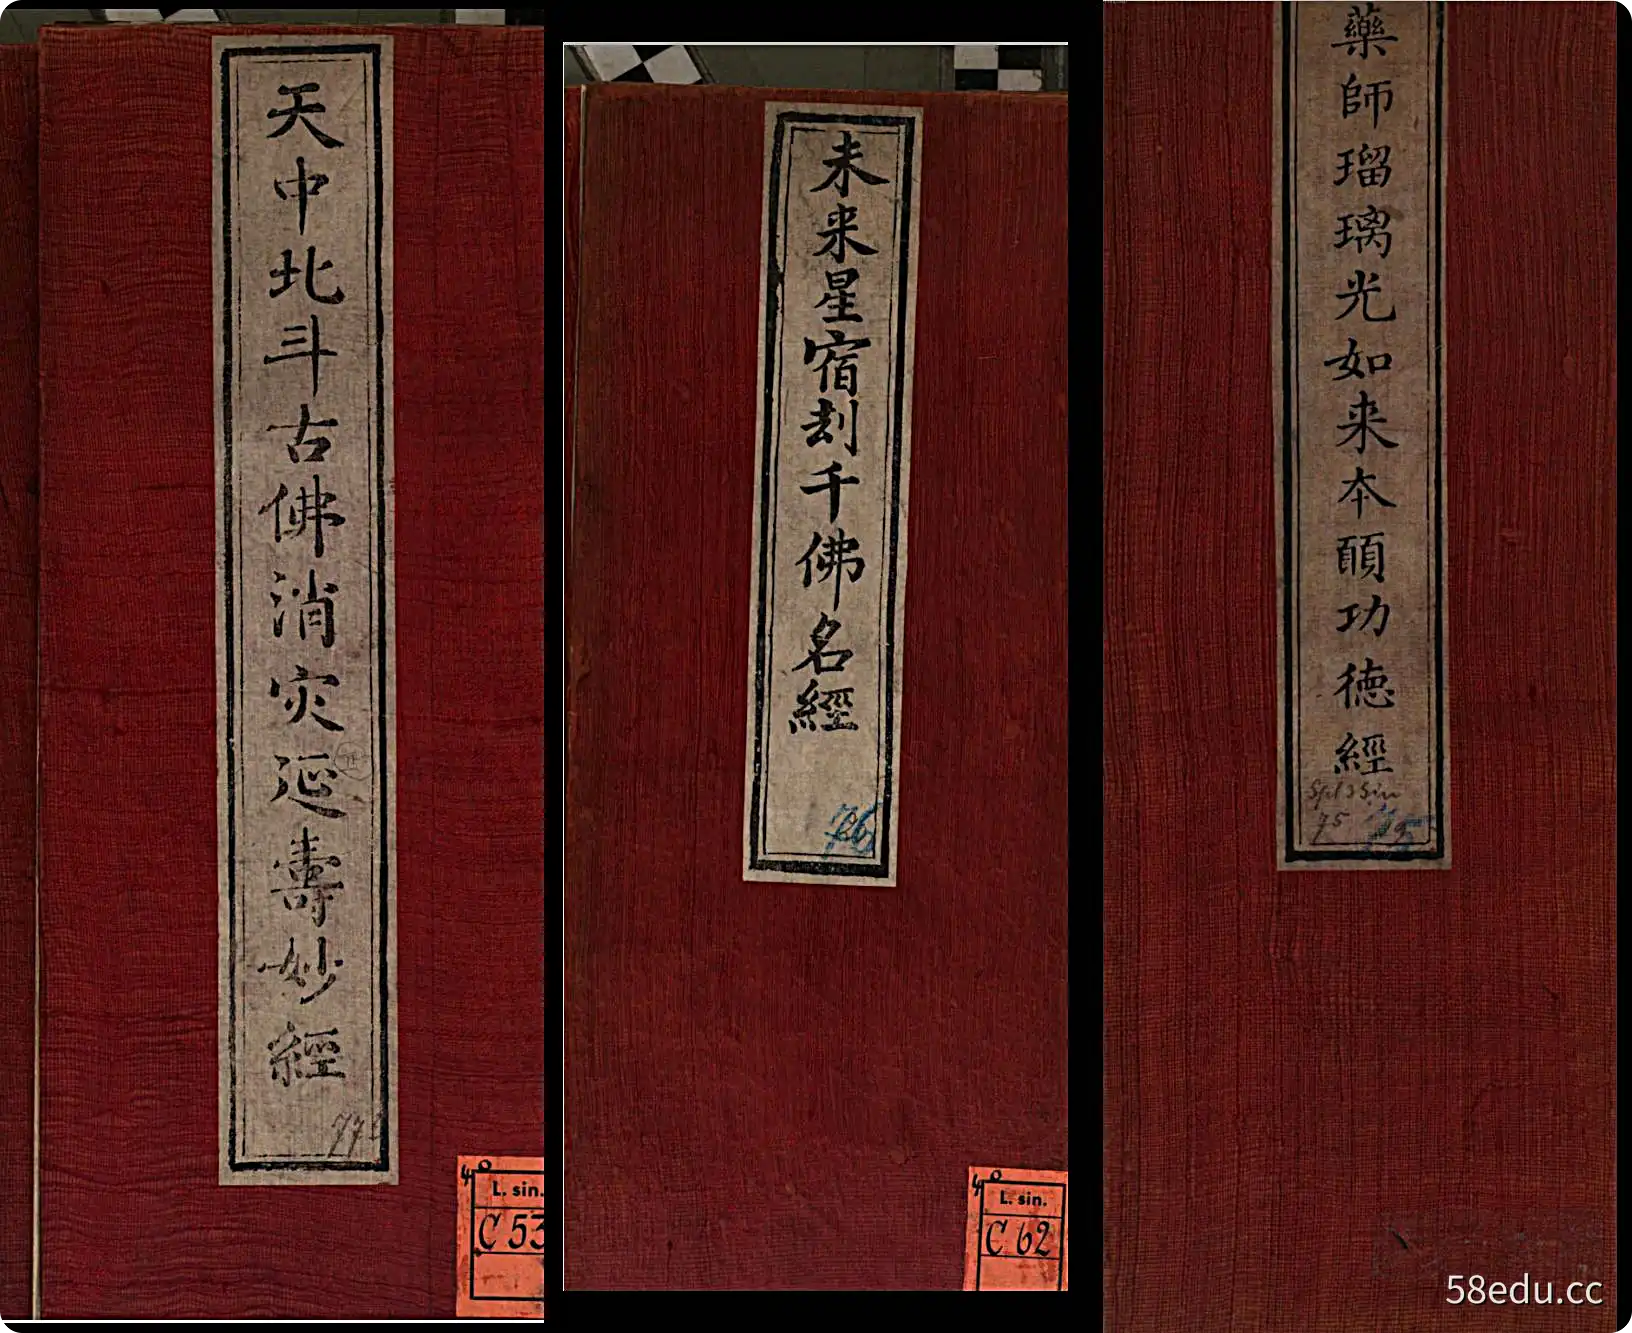 天中北斗古佛消灾延壽妙經
L. sin.
C 53
未来星宿刼千佛名經
76
L. sin.
C 62
藥師瑠璃光如来本願功德經
75
75
58edu.cc